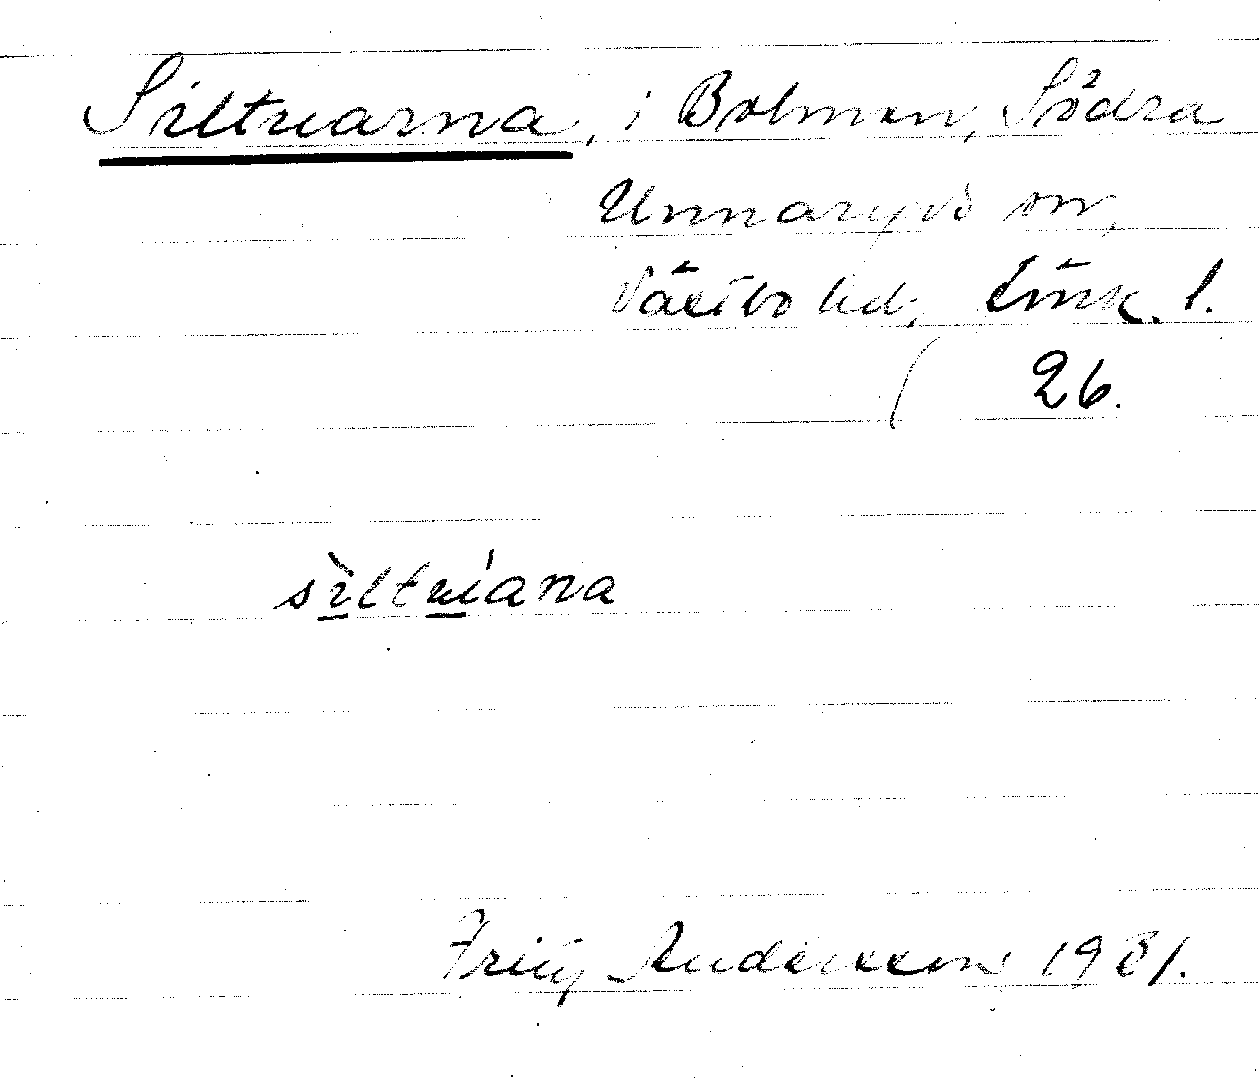 Siltuarna, i Bolmen, Södra
Unnaryds sn,
Västbo hd, Jönk. l.
( 26.
siltuana
Fritz Andersson 1981.